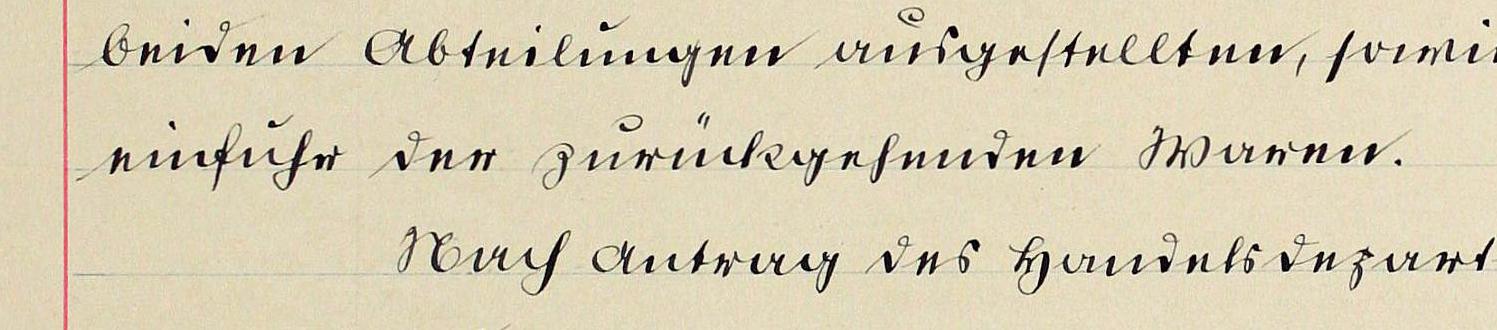 beiden Abteilungen ausgestellten, sowi
einfuhr der zurückgehenden Waren.
Nach Antrag des Handelsdepart